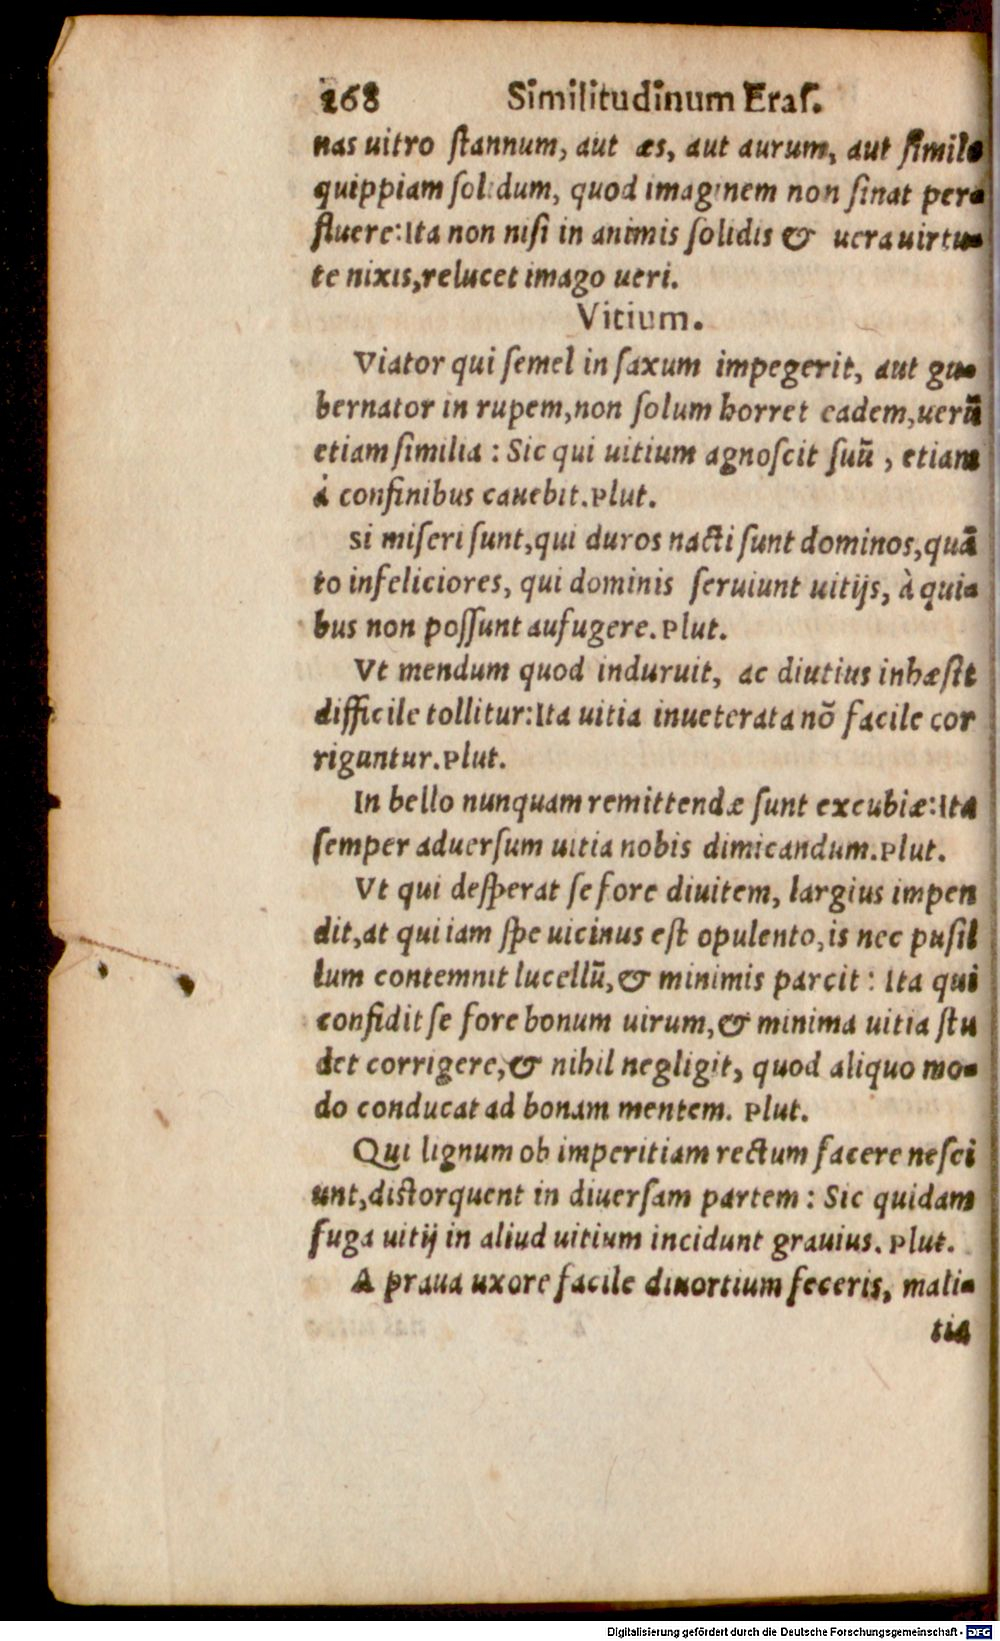 268 Similitudinum Eraſ.
nas uitro ſtannum, aut æs, aut aurum, aut ſimile
quippiam ſolidum, quod imaginem non ſinat per-
fluere: Ita non niſi in animis ſolidis & uera uirtu-
te nixis, relucet imago ueri.
Vitium.
Viator qui ſemel in ſaxum impegerit, aut gu-
bernator in rupem, non ſolum horret eadem, uerũ
etiam ſimilia: Sic qui uitium agnoſcit ſuũ, etiam
à confinibus cauebit. Plut.
Si miſeri ſunt, qui duros nacti ſunt dominos, quã
to infeliciores, qui dominis ſeruiunt uitijs, à qui-
bus non poſſunt aufugere. Plut.
Vt mendum quod induruit, ac diutius inhæſit
difficile tollitur: Ita uitia inueterata nõ facile cor
riguntur. Plut.
In bello nunquam remittendæ ſunt excubiæ: Ita
ſemper aduerſum uitia nobis dimicandum. Plut.
Vt qui deſperat ſe fore diuitem, largius impen
dit, at qui iam ſpe uicinus eſt opulento, is nec puſil
lum contemnit lucellũ, & minimis parcit: Ita qui
confidit ſe fore bonum uirum, & minima uitia ſtu
det corrigere, & nihil negligit, quod aliquo mo-
do conducat ad bonam mentem. Plut.
Qui lignum ob imperitiam rectum facere neſci
unt, diſtorquent in diuerſam partem: Sic quidam
fuga uitij in aliud uitium incidunt grauius. Plut.
A praua uxore facile diuortium feceris, mali-
tia
Digitalisierung gefördert durch die Deutsche Forschungsgemeinschaft - DFG